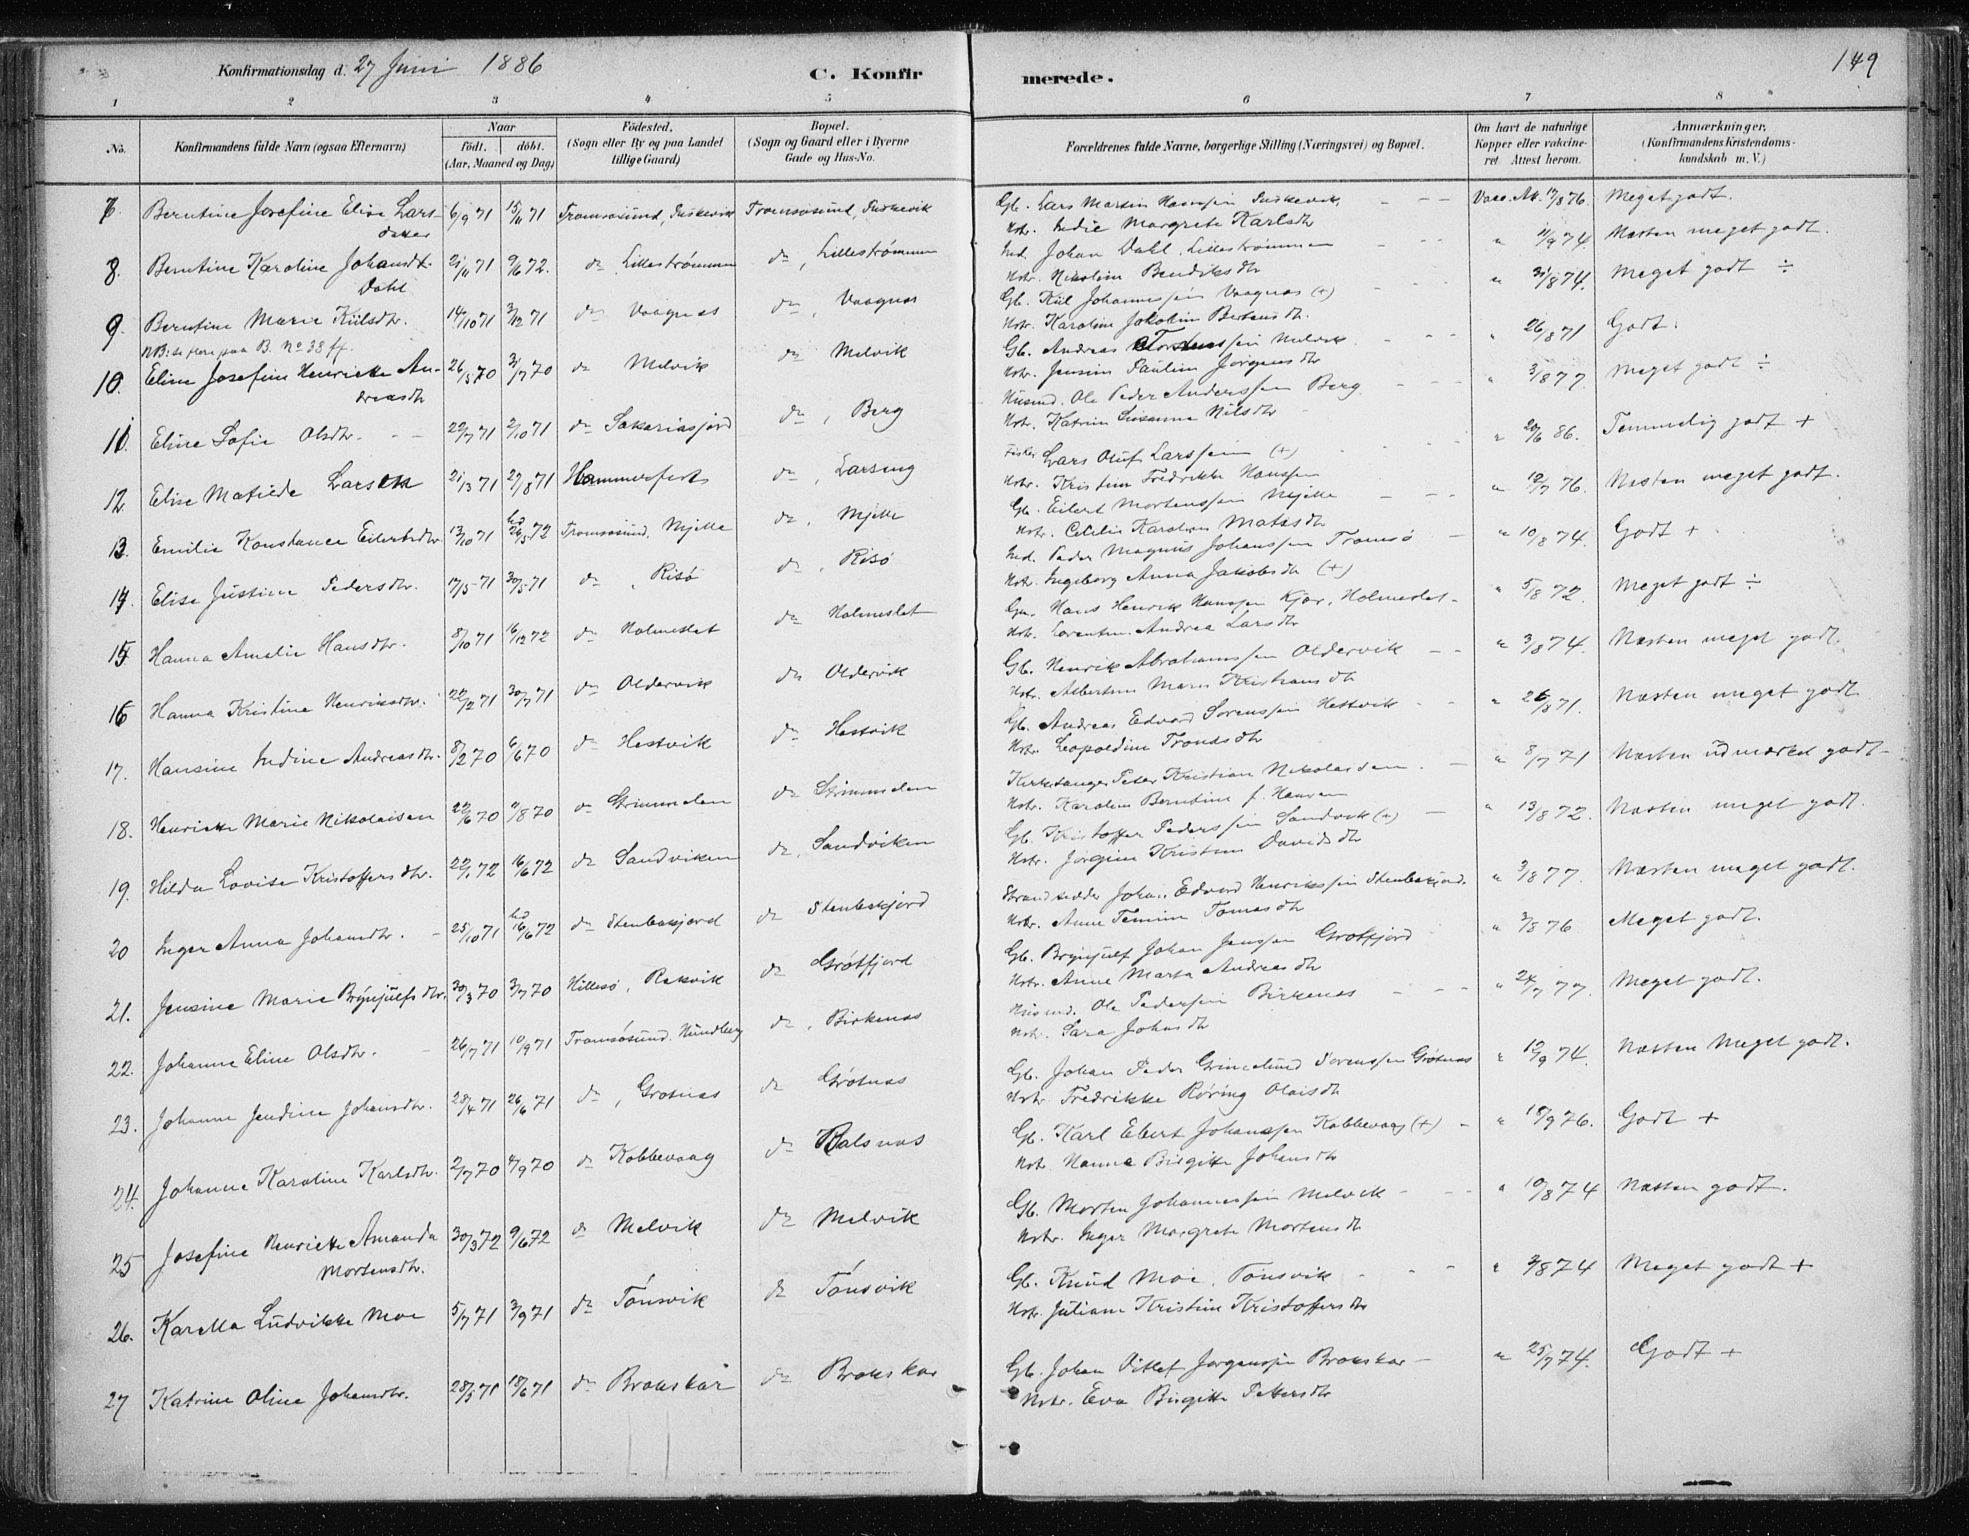 Konfirmationsdag d. 27 Juni 1886 C. Konfirmerede. 149
1 2 3 4 5 6 7 8
No. Konfirmandens fulde Navn (ogsaa Efternavn) Naar født. døbt. (Aar, Maaned og Dag) Fødested. (Sogn eller By og paa Landet tillige Gaard) Bopæl. (Sogn og Gaard eller i Byerne Gade og Hus-No. Forældrenes fulde Navne, borgerlige Stilling (Næringsvei) og Bopæl. Om havt de naturlige Kopper eller vaccineret Attest herom. Anmærkninger. (Konfirmandens Kristendomskundskab m. V.)
7. Berntine Josefine Elise Larsdatter 6/9 71 15/11 71 Tromsøsund, Tromsøsund, Gb. Lars Martin Hanssen Hstr. Indie Margrete Karlsdtr Vacc. At. 17/8 76. Meget godt.
8. Berntine Karoline Johansdt. Dahl 21/11 71 9/6 72. do Lillestrømmen do, Lillestrømmen Ind. Johan Dahl, Lillestrømmen Hstr. Nikoline Bendiksdtr " 11/9 74. Næsten meget godt.
9. Berntine Marie Kiilsdtr. 14/10 71 3/12 71 do Vaagnes do, Vaagnes Gb. Kiil Johannessen Vaagnes (+) Hstr. Karoline Jakobine Berteusdtr. " 31/8 74. Meget godt ÷
NB: se flere paa B. No 38 ff.
10. Eline Josefine Henriette Andreasdtr 26/5 70 31/7 70 do Melvik do Melvik Gb. Andreas Melvik Hstr. Jensine Pauline Jørgensdtr " 26/8 71 Godt.
11. Eline Sofie Olsdtr. 22/7 71 2/10 71 do Sakariasjord do, Berg Husmd. Ole Peder Anderssen Berg. Hstr. Katrine Susanna Nilsdtr " 3/8 77. Meget godt ÷
12. Elise Matilde Larsen 21/3 71 27/8 71 Hammerfest do, Larseng Fisker Lars Oluf Larssen (+) Hstr. Kristine Fredrikke Hanssen " 20/6 86. Temmelig godt +
13. Emilie Konstance Eilertsdtr 13/10 71 hd 26/5 72 Tromsøsund, Mjelle do, Mjelle Gb. Eilert Mortenssen Mjelle Hstr. Cecilie Karoline Matisdtr " 12/7 76. Næsten meget godt.
14. Elise Justine Pedersdtr. 17/5 71 30/5 71 do, Risø do, Risø Ind. Peder Magnus Johanssen Tromsø Hstr. Ingeborg Anna Jakobsdtr (+) " 10/8 74. Godt +
15. Hanna Amalie Hansdtr. 8/10 71 16/12 72 do Holmeslet do Holmeslet Gm. Hans Henrik Hanssen Kjær, Holmeslet Hstr. Lorentine Andrea Larsdtr " 5/8 72. Meget godt ÷
16 Hanna Kristine Henriksdtr. 22/2 71 30/7 71 do Oldervik do Oldervik Gb. Henrik Abrahamssen Oldervik Hstr. Albertine Maren Kristiansdtr " 3/8 74. Næsten meget godt.
17. Hansine Indine Andreasdtr. 8/2 70 6/6 70 do Hestvik do Hestvik Gb. Andreas Edvard Sørenssen Hestvik Hstr. Leopoldine Trondsdtr " 26/8 71. Næsten meget godt
18. Henriette Marie Nikolaisen 22/6 70 11/8 70 do Skrimmelen do Skrimmelen Kirkesanger Peter Kristian Nikolaisen. Hstr. Karoline Berntine f. Hansen " 8/7 71 Næsten udmærket godt
19. Hilda Lovise Kristoffersdtr. 22/1 72 16/6 72 do Sandviken do, Sandviken Gb. Kristoffer Pederssen Sandvik (+) Hstr. Jørgine Kristine Davidsdtr " 13/8 72. Næsten meget godt.
20 Inger Anna Johansdtr. 25/10 71 hd 16/6 72 do Stenbakjord do Stenbakjord Strandsidder Johan Edvard Henrikssen Stenbakjord. Hstr. Anne Temine Tomasdtr " 3/8 77. Næsten meget godt.
21. Jensine Marie Brynjulfsdtr. 30/3 70 3/7 70 Hillesø, Rekvik do Grøtfjord Gb. Brynjulf Johan Jenssen Grøtfjord Hstr. Anne Marta Andreasdtr " 3/8 76 Meget godt.
22. Johanne Eline Olsdtr. 26/7 71 10/9 71 Tromsøsund. Hundberg do, Birkenes Husmd. Ole Pederssen Birkenes Hstr. Sara Johnsdtr " 24/7 77. Meget godt.
23. Johanne Jendine Johansdtr. 28/4 71 26/6 71 do, Grøtnes do Grøtnes Gb. Johan Peder Grinelund Sørenssen Grøtnes Hstr. Fredrikke Røring Olaisdtr " 12/9 74. Næsten Meget godt.
24. Johanne Karoline Karlsdtr. 2/7 70 4/9 70 do Kobbevaag do Balsnes Gb. Karl Ebert Johanssen Kobbevaag (+) Hstr. Hanna Birgitte Johansdtr " 18/9 76. Godt +
25 Josefine Henriette Amanda Mortensdtr. 30/3 72 9/6 72 do Melvik do Melvik Gb. Morten Johannessen Melvik Hstr. Inger Margrete Mortensdtr " 10/8 74 Næsten godt.
26. Karella Ludvikke Moe 5/7 71 3/9 71 do Tønsvik do Tønsvik Gb. Knud Moe, Tønsvik Hstr. Juliane Kristine Kristoffersdtr " 3/8 74 Meget godt +
27 Katrine Oline Johansdtr. 28/3 71 18/6 71 do Brokskar do Brokskar Gb. Johan Ditlef Jørgenssen Brokskar Hstr. Eva Birgitte Pettersdtr " 25/7 74. Godt +